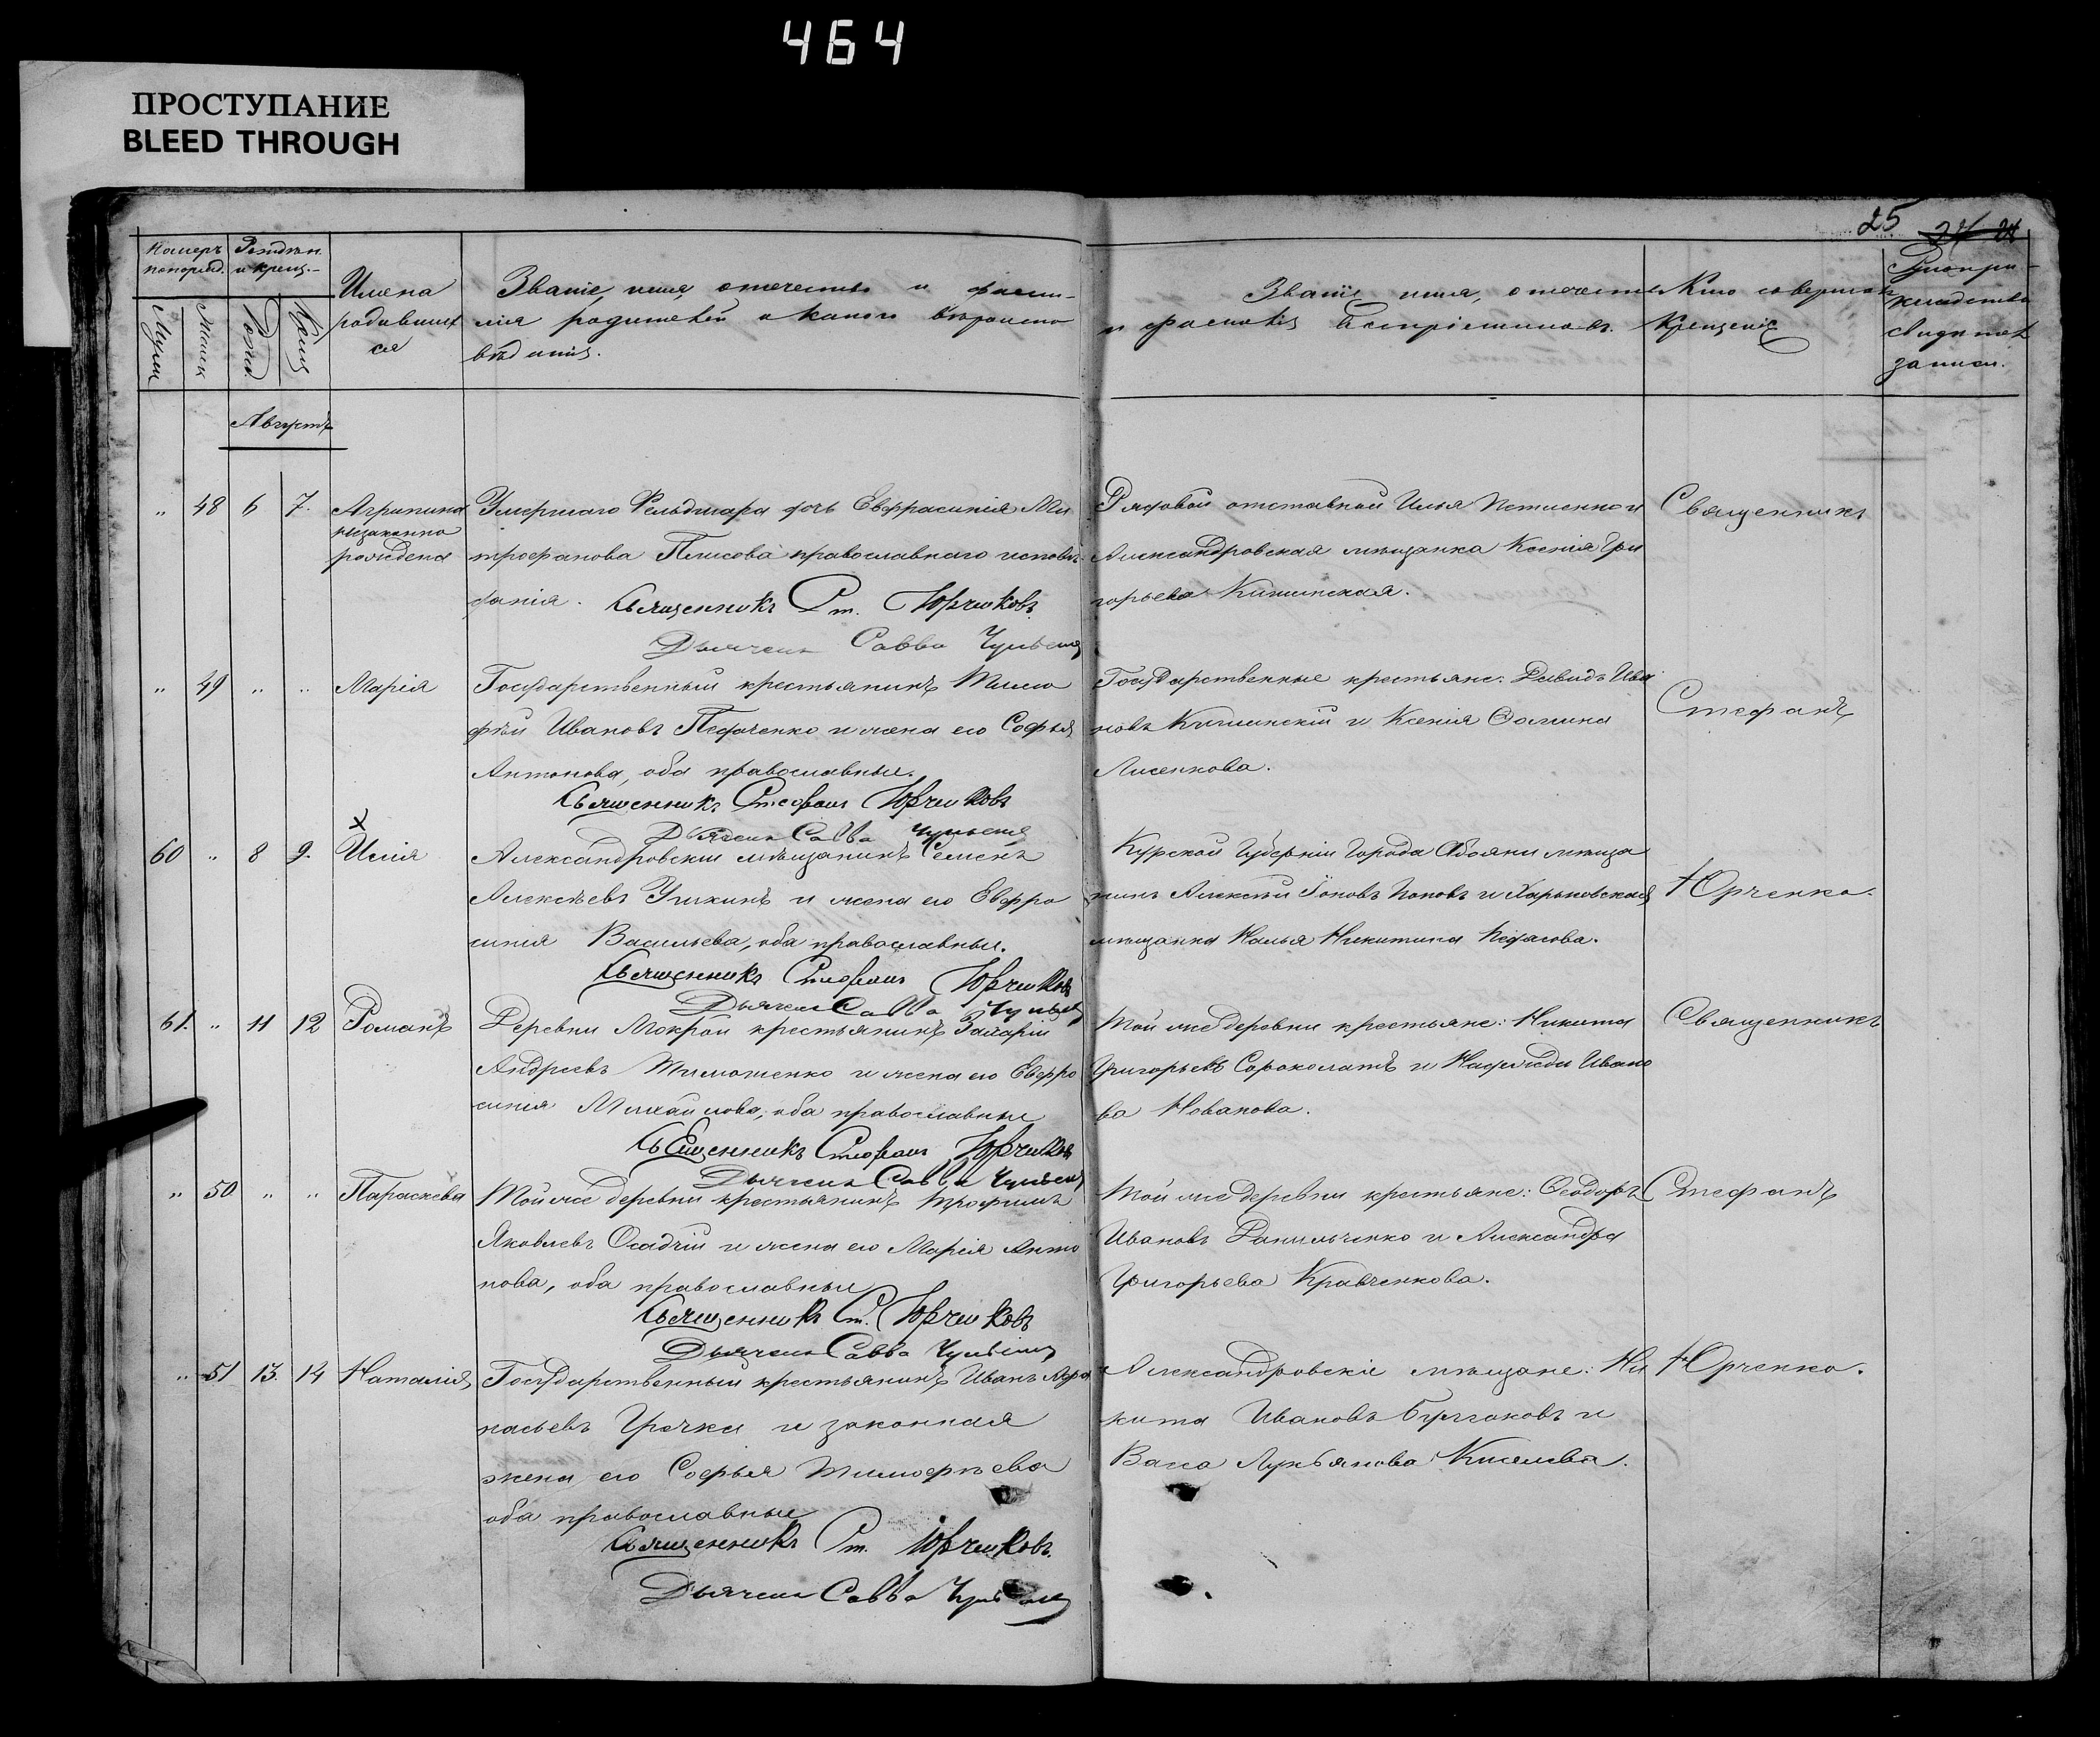 464
ПРОСТУПАНИЕ
BLEED THROUGH
25
Номеръ
Имена
родивших
ся
Званіе, имя, отечество и фами-
лія родителей и какого вѣроиспо
вѣданія.
Званіе имя, отечество
и фамилія воспріемниковъ.
Кто совершалъ
Крещеніе
Рукопри-
записи.
Августъ
" 48 6 7. Агрипина
незаконно
рождена
Умершаго Фельдшара дочь Евфрасинія Ми
трофанова православнаго исповѣ
данія.
Священникъ Ст. Юрченковъ
Дьячекъ Савва
Рядовой отставной Илья и
Александровская мѣщанка Ксенія Гри
горьева
Священникъ
" 49 " " Марія
Государственный крестьянинъ Тимо
фѣй Ивановъ Педченко и жена его Софья
Антонова, оба православные.
Священникъ Стефанъ Юрченковъ
Дьячекъ Савва
Государственные крестьяне: Давидъ Ива
новъ и Ксенія Фомина
Лисенкова.
Стефанъ
х
60 " 8 9. Илія
Александровскій мѣщанинъ Семенъ
Алексѣевъ и жена его Евфро
синія Васильева, оба православные.
Священникъ Стефанъ Юрченковъ
Дьячекъ Савва
Курской Губерніи Города Обояни мѣща
нинъ Алексѣй Іоновъ Поповъ и Харьковская
мѣщанка Никитина
Юрченко.
61. " 11 12 Романъ
Деревни Мокрой крестьянинъ Захарій
Андреевъ Тимошенко и жена его Евфро
синія Михайлова, оба православные
Священникъ Стефанъ Юрченковъ
Дьячекъ Савва
Той же деревни крестьяне: Никита
Григорьевъ Сороколатъ и Надежда Ивано
ва
Священникъ
" 50 " " Параскева
Той же деревни крестьянинъ Трофимъ
Яковлевъ Осадчій и жена его Марія Анто
нова, оба православные
Священникъ Ст. Юрченковъ
Дьячекъ Савва
Той же деревни крестьяне: Ѳеодоръ
Ивановъ Данильченко и Александра
Григорьева Кравченкова.
Стефанъ
" 51 13. 14 Наталія
Государственный крестьянинъ Иванъ Афа
насьевъ Гречка и законная
жена его Софья Тимофѣева
оба православные
Священникъ Ст. Юрченковъ.
Дьячекъ Савва
Александровскіе мѣщане: Ни
кита Ивановъ и
Васса Лукьянова Киселева.
Юрченко.